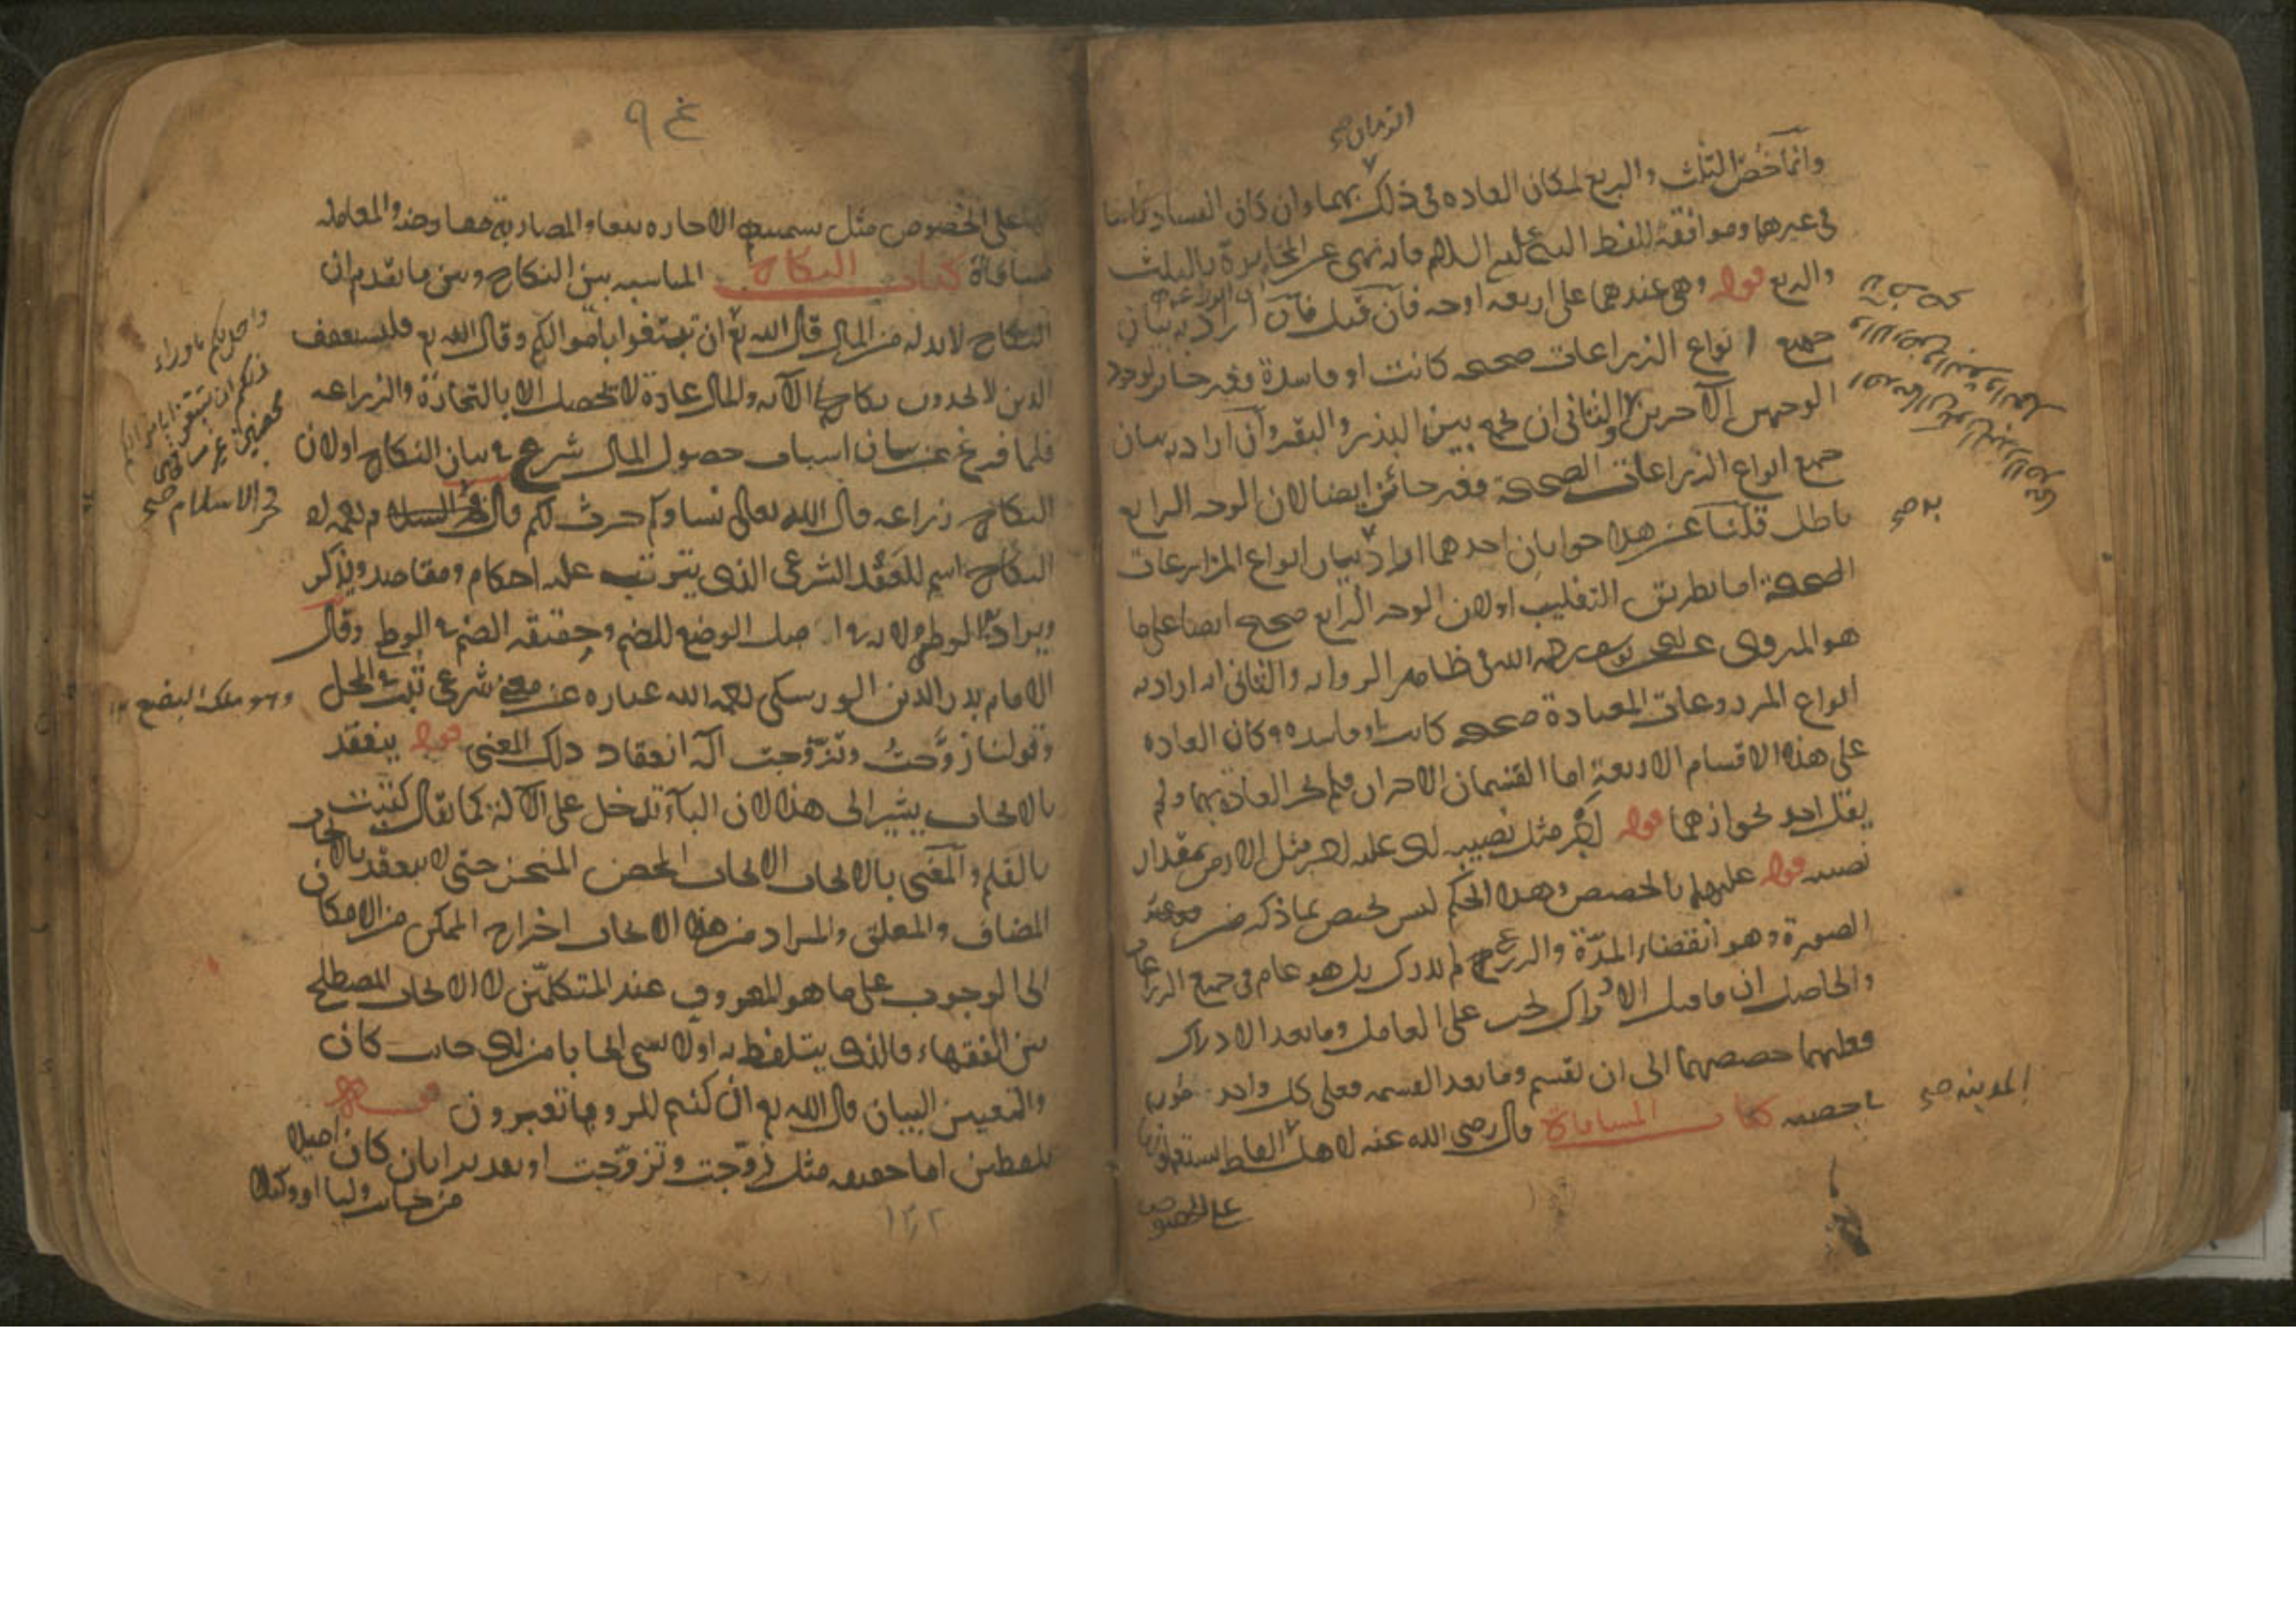 الزمان صح
وانما خص الثلث والربع لمكان العاده فى ذلك بهما وان كان الفساد ثابتا
فى غيرهما وموافقة للفظ النبى عليه السلام فانه نهى عن المخابرة بالثلث
والربع قوله وهى عندهما على اربعه اوجه فان قيل فان اراد به بيان
جميع انواع الزراعات صحيحه كانت او فاسدة فغير جائز لوجود
الوجهين الآخرين والثانى ان يجمع بين البذر والبقر وان اراد به بيان
جميع انواع الزراعات الصحيحة فغير جائز ايضا لان الوجه الرابع
باطل قلنا عن هذا جوابان احدهما اراد بيان انواع المزارعات
الصحيحة اما بطريق التغليب او لان الوجه الرابع صحيح ايضا على ما
هو المروى عن ابى يوسف رحمه الله فى ظاهر الروايه والثانى انه اراد به
انواع المزروعات المعتادة صحيحه كانت او فاسده وكان العاده
على هذه الاقسام الاربعة اما القسمان الاخران فلم يجر العادة بهما ولم
يقل احد بجوازهما قوله اجر مثل نصيبه اى عليه اجر مثل الارض بمقدار
نصيبه قوله عليهما بالحصص وهذا الحكم ليس يختص بما ذكر من
الصورة وهو انقضاء المدة والزرع لم يدرك بل هو عام فى جميع الزراعات
والحاصل ان ما قبل الادراك يجب على العامل وما بعد الادراك
فعليهما حصصهما الى ان يقسم وما بعد القسمه فعلى كل واحد
حصته كتاب المساقاة قال رضى الله عنه لاهل الفاظ يستعملونها
المدينه صح
به صح
على الخصوص
غ ٩
على الخصوص مثل تسميتهم الاجاره بيعا والمضاربة مقارضه والمعامله
مساقاة كتاب النكاح المناسبه بين النكاح وبين ما تقدم ان
النكاح لا بد له من المال قال الله تع ان تبتغوا باموالكم وقال الله تع فليستعفف
الذين لا يجدون نكاحا الآيه والمال عادة لا يحصل الا بالتجارة والزراعه
فلما فرغ عن بيان اسباب حصول المال شرع فى بيان النكاح او لان
النكاح زراعه قال الله تعالى نساوكم حرث لكم قال رحمه الله
النكاح اسم للعقد الشرعى الذى يترتب عليه احكام ومقاصد ويذكر
ويراد به الوطى ولانه فى اصل الوضع للضم وحقيقه الضم فى الوطى وقال
الامام بدر الدين الورسكى رحمه الله عباره عن معنى شرعى ثبت فى المحل
وهو ملك البضع
وقولنا زوجت وتزوجت آلة انعقاد ذلك المعنى قوله ينعقد
بالايجاب يشير الى هذا لان الباء تدخل على الآلة كما يقال كتبت
بالقلم والمعنى بالايجاب الايجاب المحض المنجز حتى لا ينعقد بالايجاب
المضاف والمعلق والمراد من هذا الايجاب اخراج الممكن من الامكان
الى الوجوب على ما هو المعروف عند المتكلمين لا الايجاب المصطلح
بين الفقهاء فالذى يتلفظ به اولا يسمى ايجابا من اى جانب كان
والتعبير البيان قال الله تع ان كنتم للرويا تعبرون قوله
بلفظين اما حقيقه مثل زوجت وتزوجت او بعد بدا بان كان اصيلا
من جانب وليا او وكيلا
واحل لكم ما وراء
ذلكم ان تبتغوا باموالكم
محصنين غير مسافحين
فخر الاسلام صح